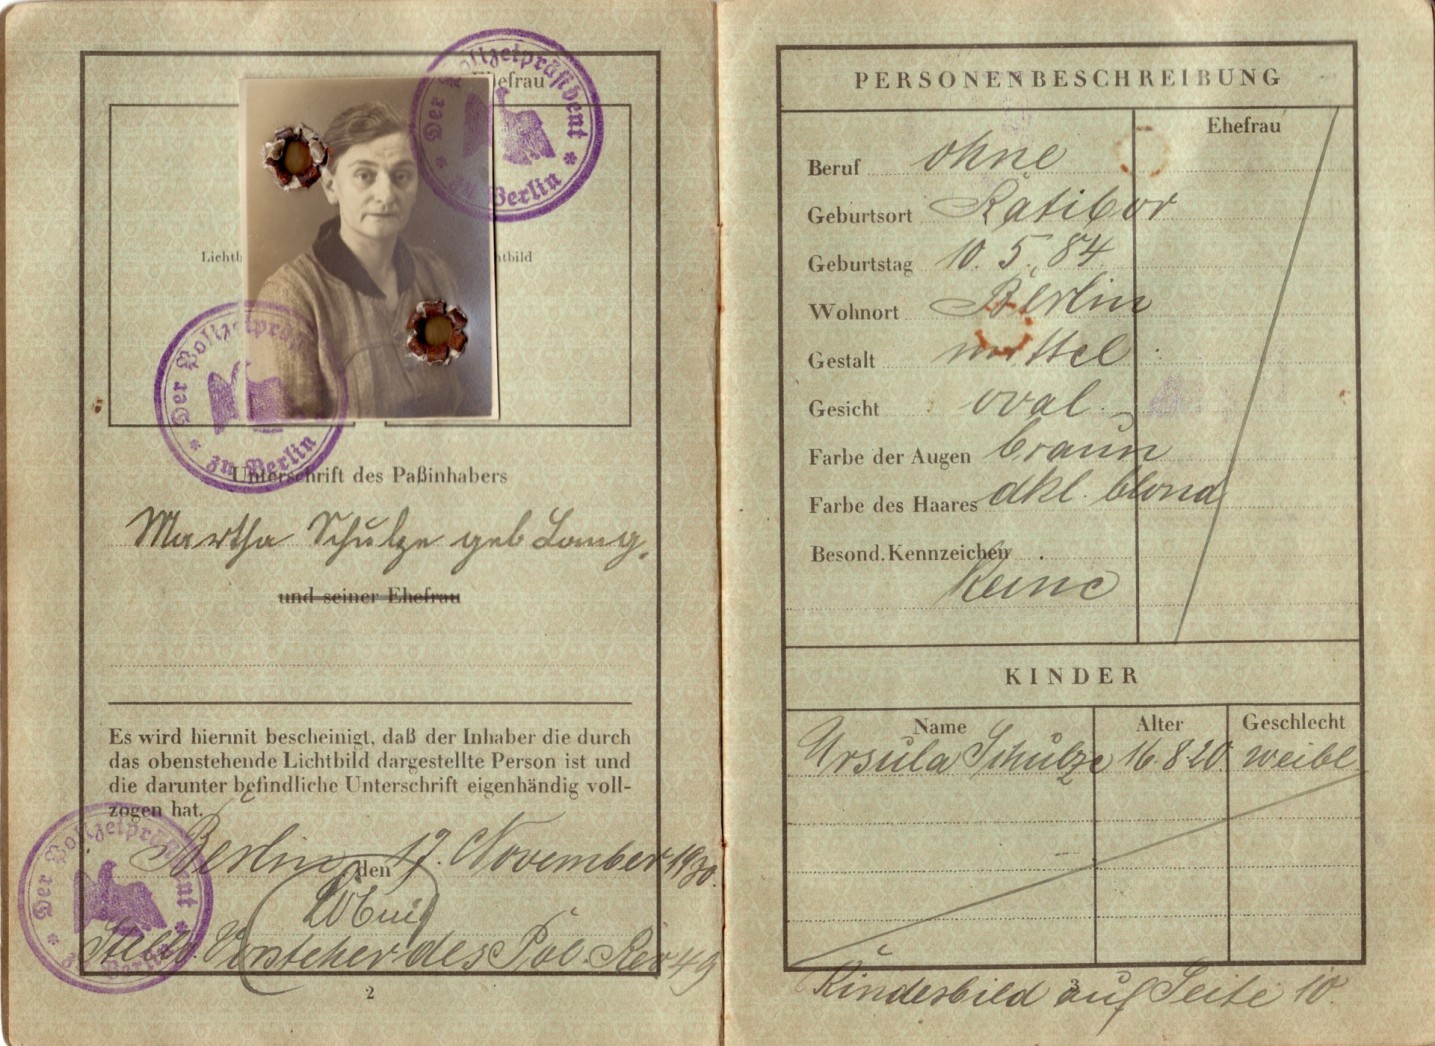 Ehefrau
Der Polizeipräsident
zu Berlin
Der Polizeipräsident
zu Berlin
Unterschrift des Paßinhabers
Martha Schulze geb Lang.
und seiner Ehefrau
Es wird hiermit bescheinigt, daß der Inhaber die durch
das obenstehende Lichtbild dargestellte Person ist und
die darunter befindliche Unterschrift eigenhändig voll-
zogen hat.
Berlin den 17. November 1930.
Stellv. Vorsteher des Pol. Rev 49
Der Polizeipräsident
zu Berlin
2
PERSONENBESCHREIBUNG
Ehefrau
Beruf ohne
Geburtsort Ratibor
Geburtstag 10. 5. 84.
Wohnort Berlin
Gestalt mittel
Gesicht oval.
Farbe der Augen braun
Farbe des Haares dkl. blond
Besond. Kennzeichen
Keine
KINDER
Name Alter Geschlecht
Ursula Schulze 16.8.20. weibl
3
Kindesbild auf Seite 10.